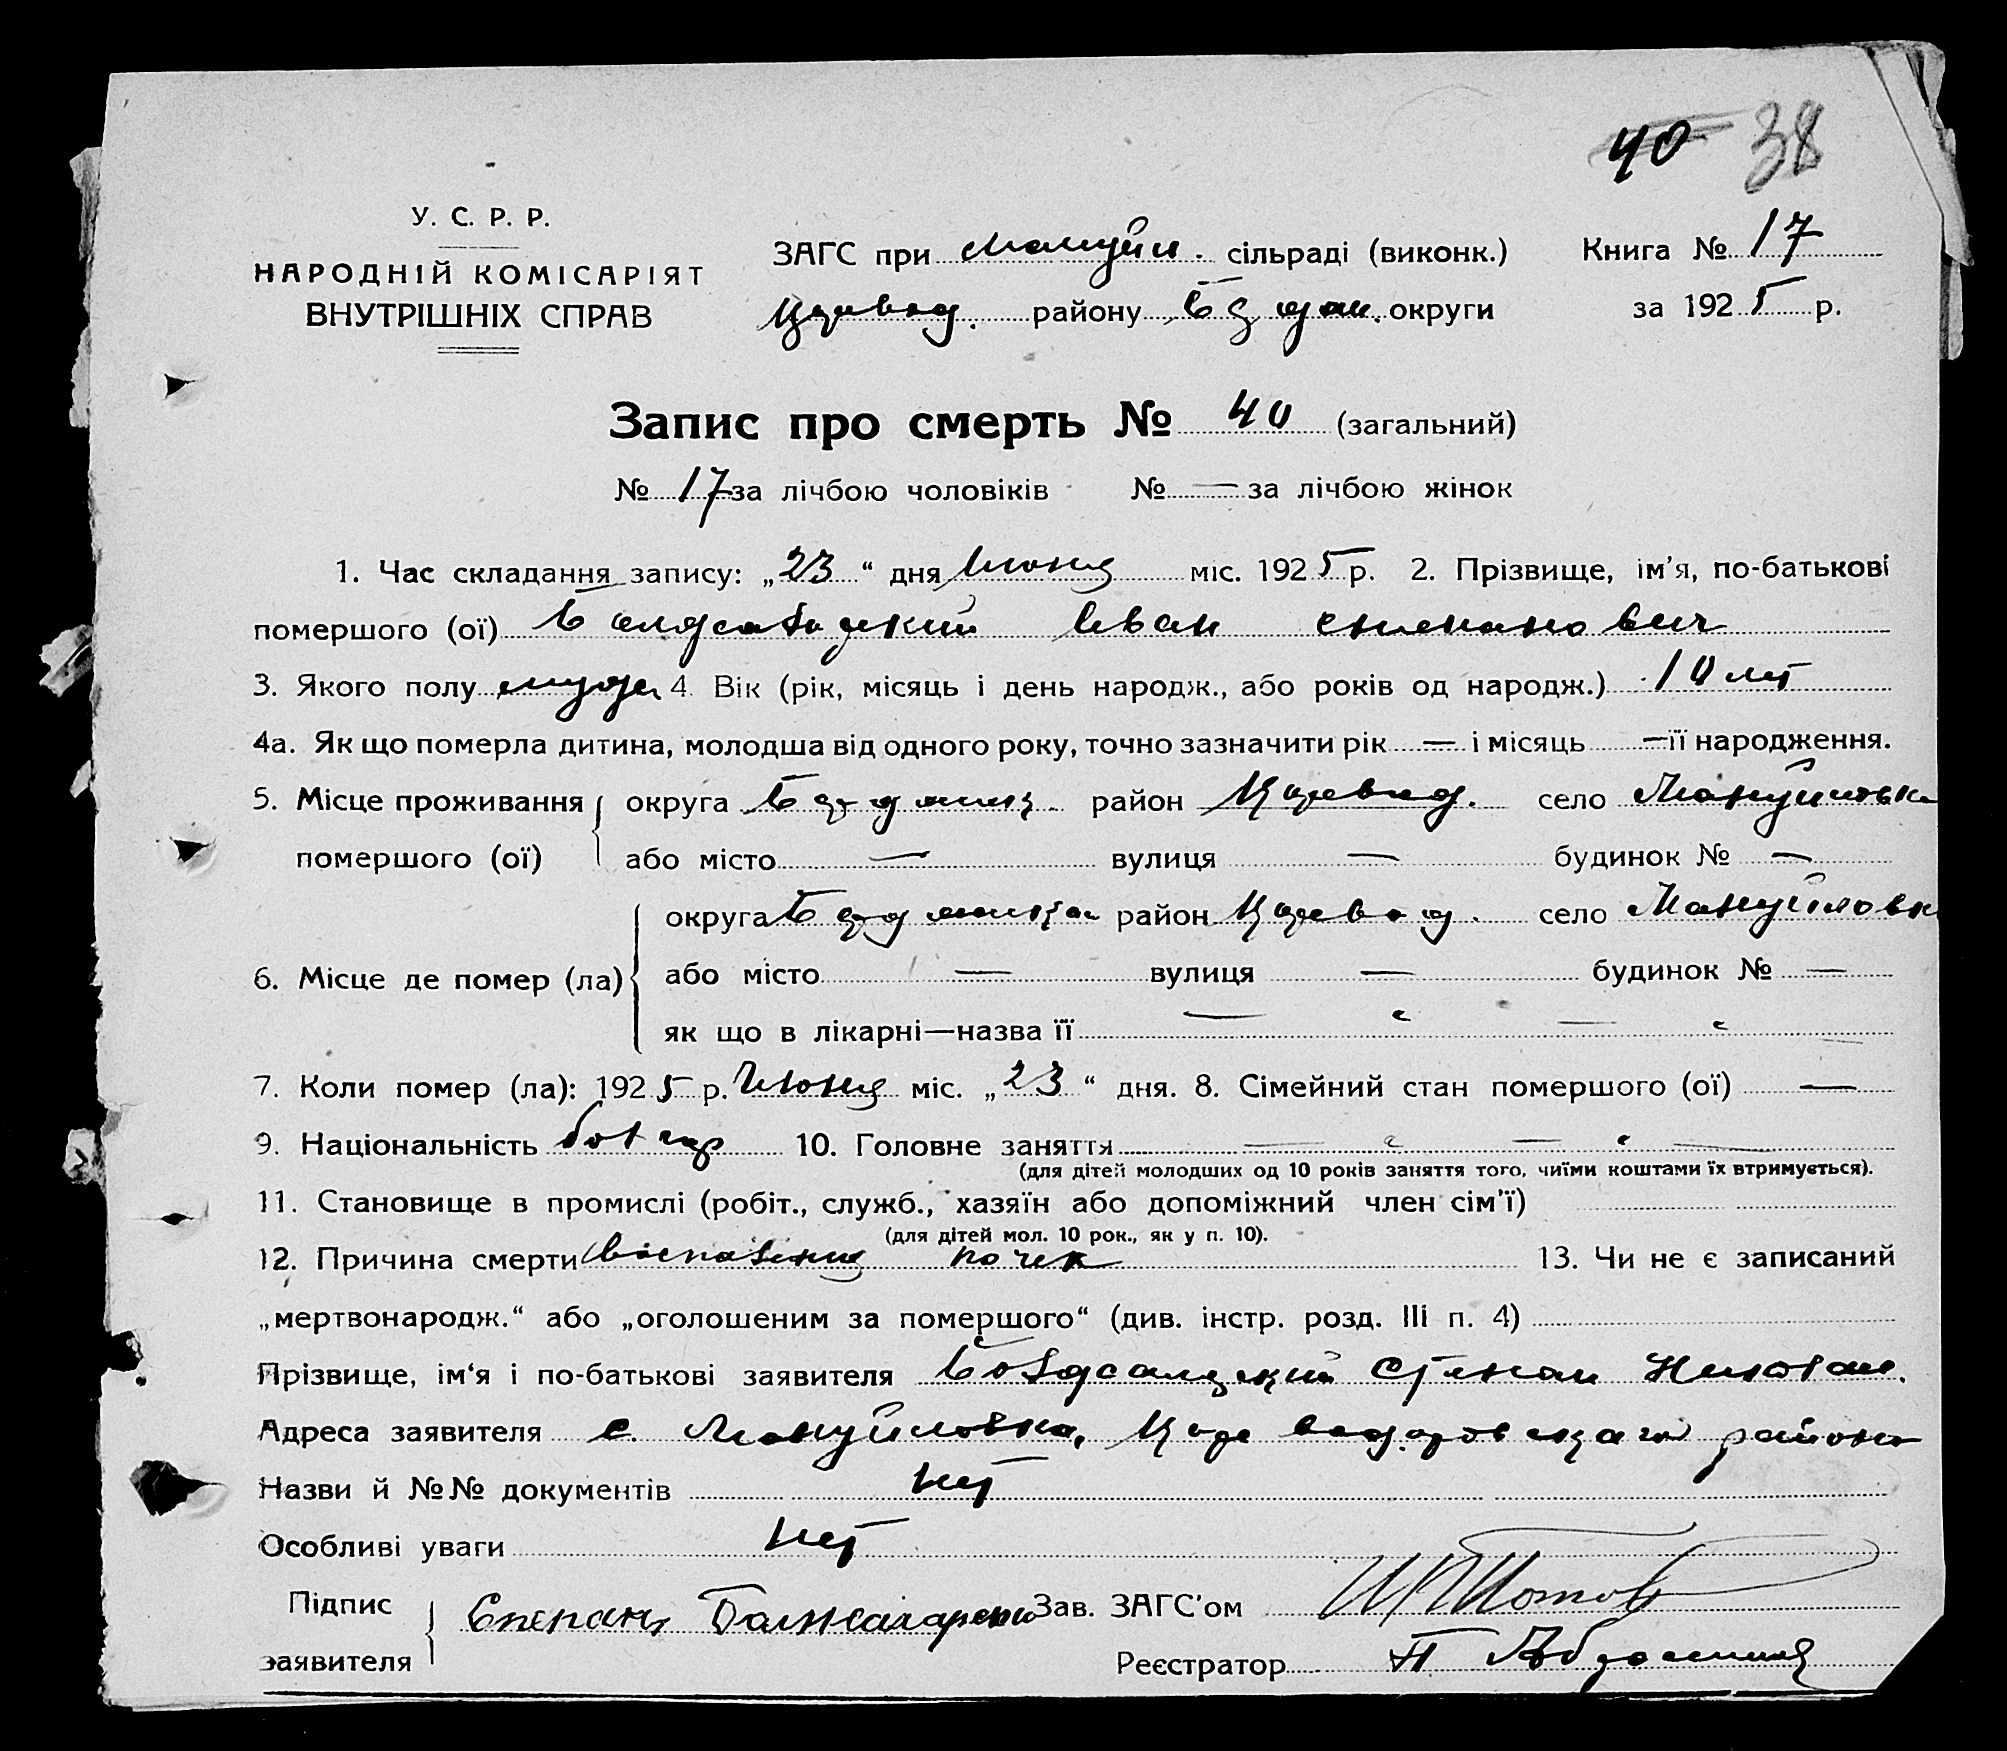 40 38
У. С. Р. Р.
НАРОДНІЙ КОМІСАРІЯТ
ВНУТРІШНІХ СПРАВ
ЗАГС при Мануйл. сільраді (виконк.)
Царевод. району округи
Книга № 17
за 1925 р.
Запис про смерть № 40 (загальний)
№ 17 за лічбою чоловіків № — за лічбою жінок
1. Час складання запису: „23“ дня Июня міс. 1925 р. 2. Прізвище, ім'я, по-батькові
помершого (ої) Иван Степанович
3. Якого полу 4. Вік (рік, місяць і день народж., або років од народж.) 10 лет
4а. Як що померла дитина, молодша від одного року, точно зазначити рік — і місяць — її народження.
5. Місце проживання помершого (ої) округа район Царевод. село Мануйловка
або місто — вулиця — будинок № —
6. Місце де помер (ла) округа район Царевод. село Мануйловк
або місто — вулиця — будинок № —
як що в лікарні—назва її — „ — „
7. Коли помер (ла): 1925 р. Июня міс. „23“ дня. 8. Сімейний стан помершого (ої) —
9. Національність болгар 10. Головне заняття — „ — „ —
(для дітей молодших од 10 років заняття того, чиїми коштами їх втримується).
11. Становище в промислі (робіт., служб., хазяїн або допоміжний член сім'ї)
(для дітей мол. 10 рок., як у п. 10).
12. Причина смерти Воспаления почек 13. Чи не є записаний
„мертвонародж.“ або „оголошеним за помершого“ (див. інстр. розд. III п. 4)
Прізвище, ім'я і по-батькові заявителя Степан Николаи.
Адреса заявителя с. Мануйловка, района
Назви й №№ документів Нет
Особливі уваги Нет
Підпис заявителя Степанъ
Зав. ЗАГС'ом
Реєстратор